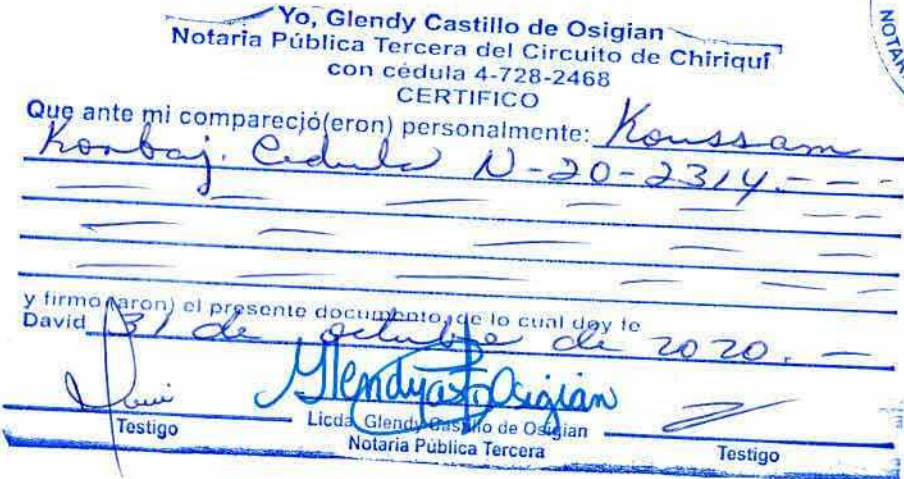 Yo, Glendy Castillo de Osigian
Notaria Pública Tercera del Circuito de Chiriquí
con cédula 4-728-2468
CERTIFICO
Que ante mi compareció(eron) personalmente: Koussam
Korbaj. Cedula N-20-2314. - - -
y firmó(aron) el presente documento, de lo cual doy fe
David 31 de octubre de 2020. -
Glendy Osigian
Licda. Glendy Castillo de Osigian
Testigo Notaria Pública Tercera Testigo
NOTAR